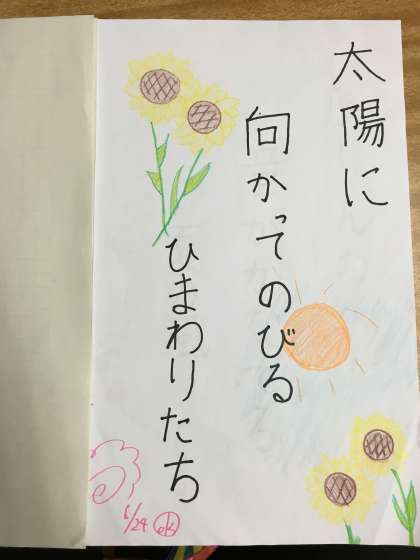 太陽に
向かってのびる
ひまわりたち
6/24